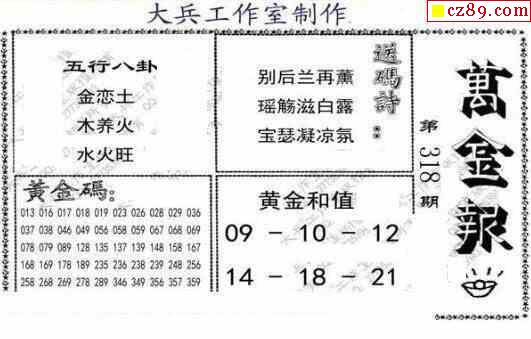 大兵工作室制作
cz89.com
五行八卦
金恋土
木养火
水火旺
送碼詩：
别后兰再薰
瑶觞滋白露
宝瑟凝凉氛
萬金報
第318期
黄金碼：
013 016 017 018 019 023 026 028 029 036
037 038 046 049 056 058 059 067 068 069
078 079 089 128 135 137 139 148 158 167
168 169 178 189 214 235 236 239 248 256
258 268 269 278 289 346 347 356 357 359
黄金和值
09 － 10 － 12
14 － 18 － 21